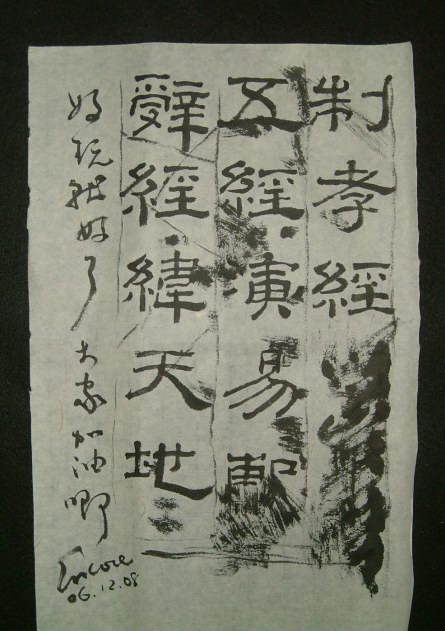 制孝經
五經寅易
辭經緯天地
好玩就好了 大家加油啊
Encore
06.12.08